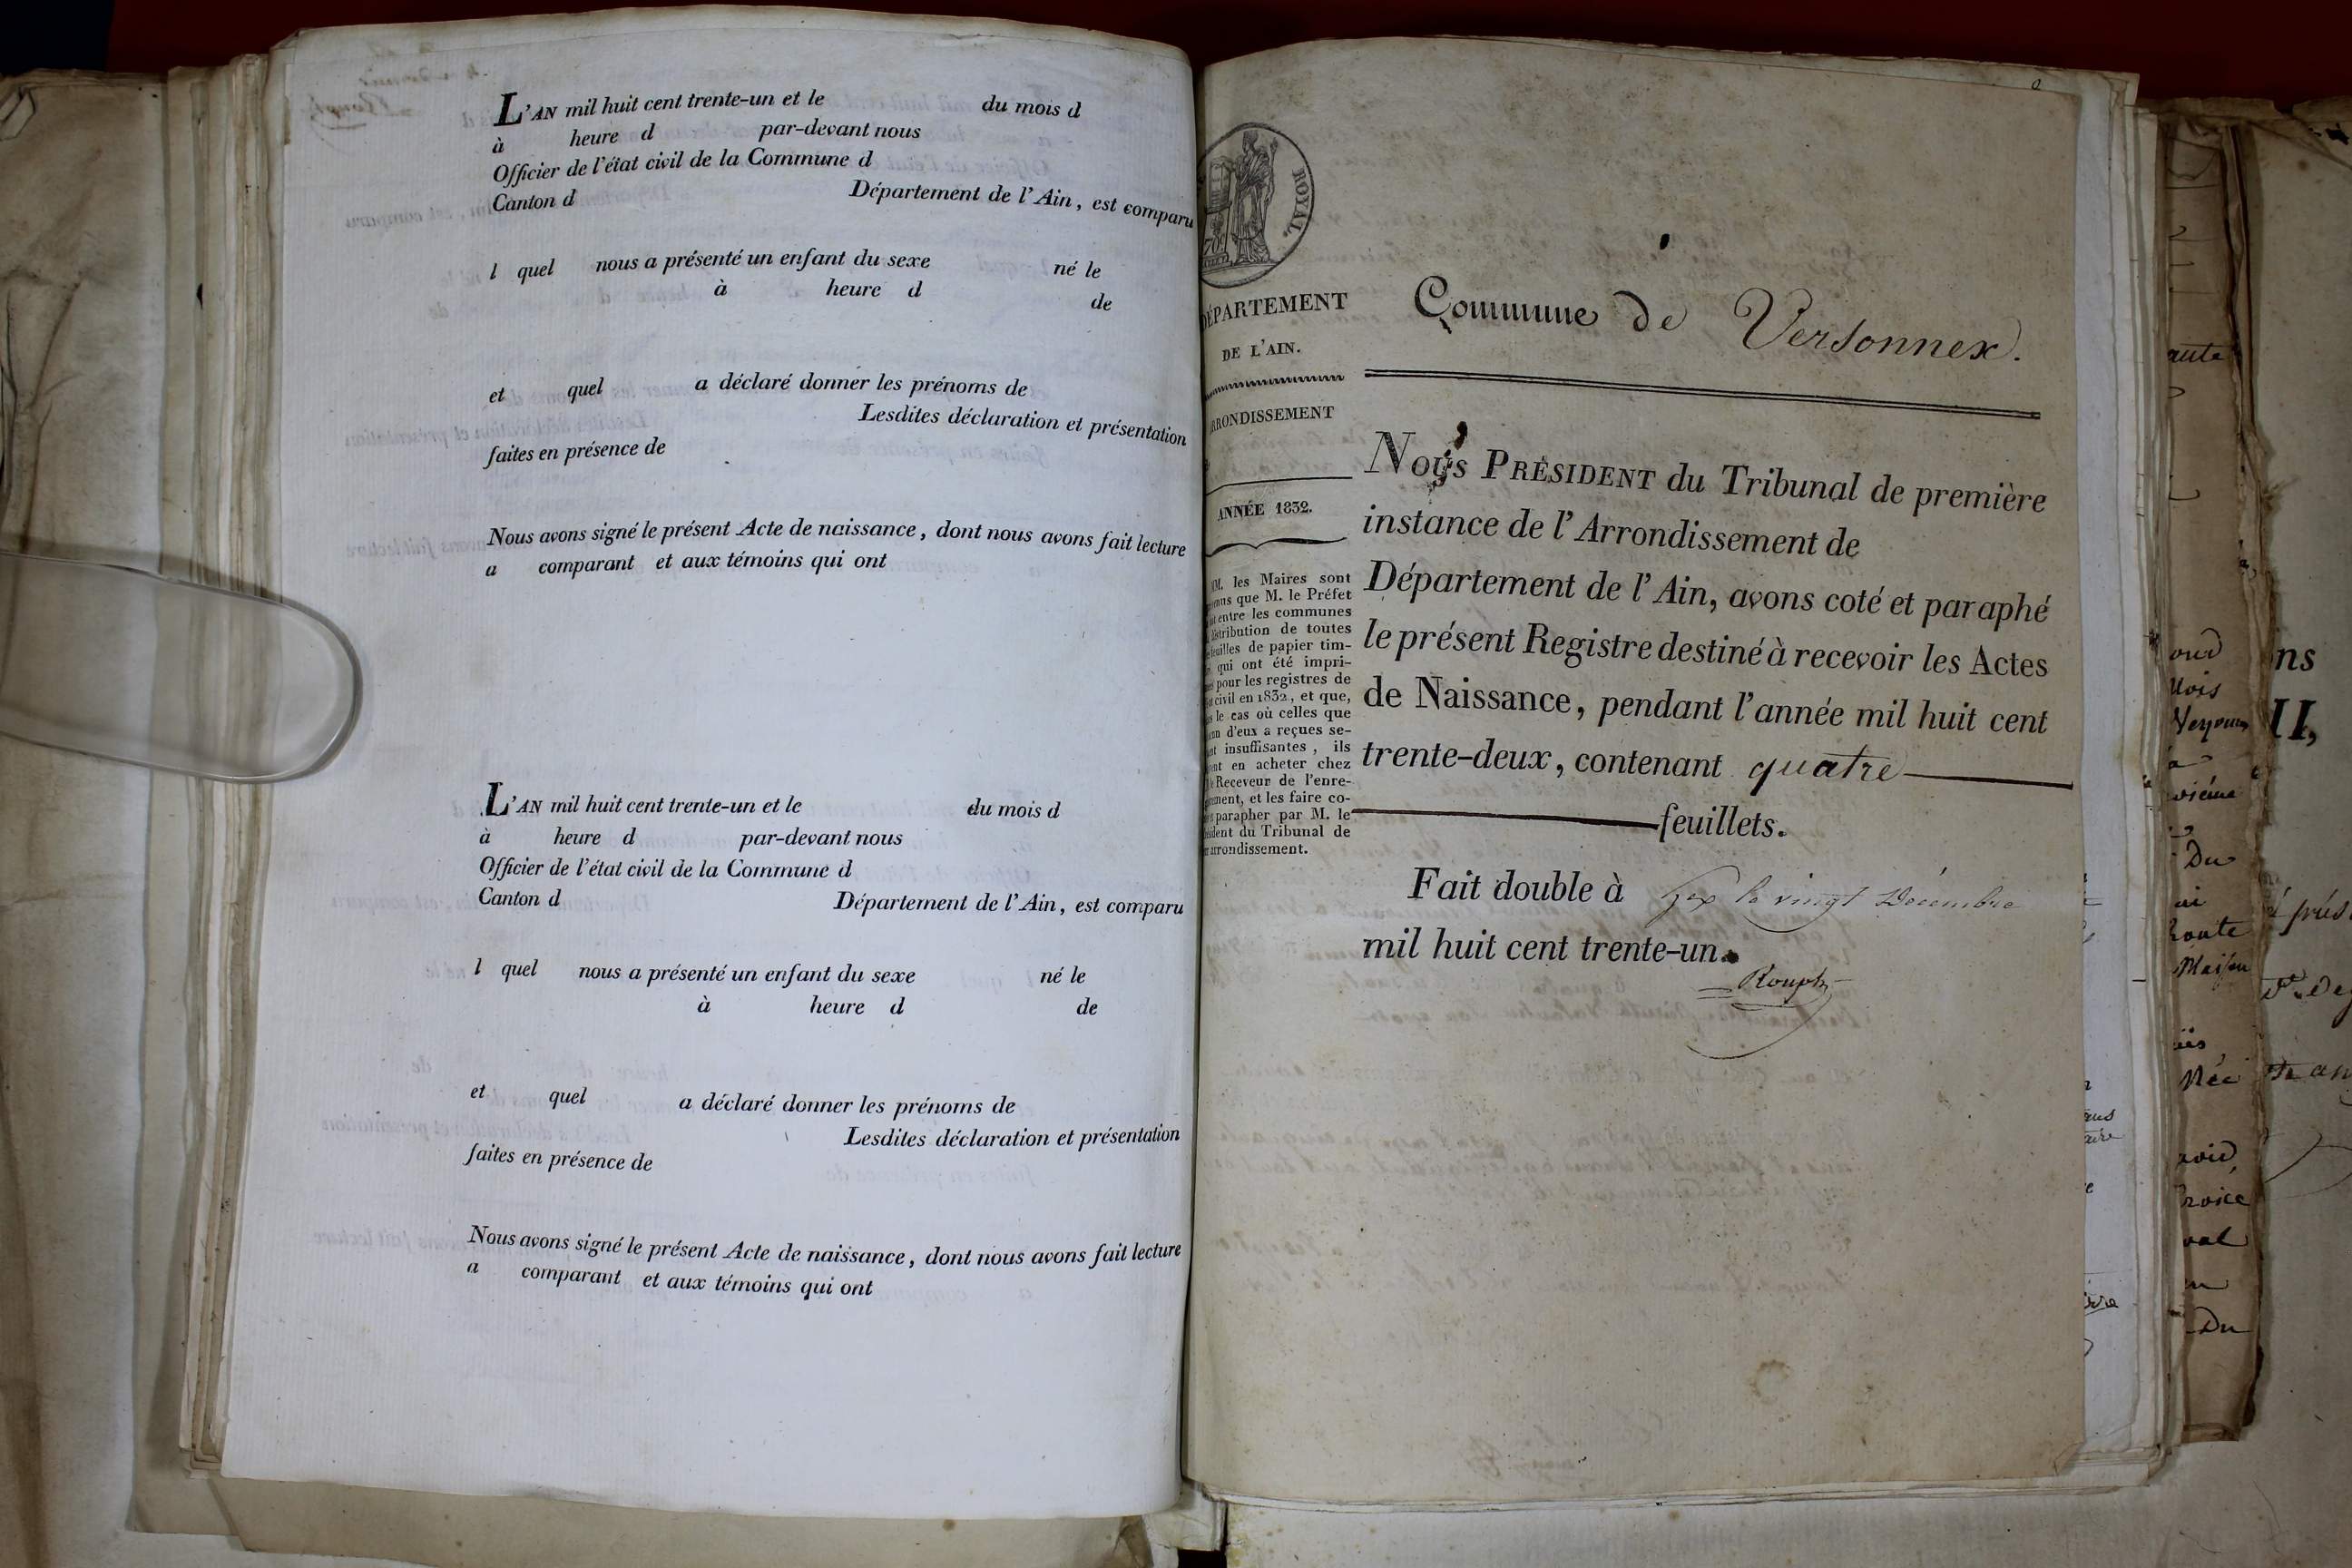 L'AN mil huit cent trente-un et le du mois d
à heure d par-devant nous
Officier de l'état civil de la Commune d
Canton d Département de l'Ain, est comparu
l quel nous a présenté un enfant du sexe né le
à heure d de
et quel a déclaré donner les prénoms de
Lesdites déclaration et présentation
faites en présence de
Nous avons signé le présent Acte de naissance, dont nous avons fait lecture
a comparant et aux témoins qui ont
L'AN mil huit cent trente-un et le du mois d
à heure d par-devant nous
Officier de l'état civil de la Commune d
Canton d Département de l'Ain, est comparu
l quel nous a présenté un enfant du sexe né le
à heure d de
et quel a déclaré donner les prénoms de
Lesdites déclaration et présentation
faites en présence de
Nous avons signé le présent Acte de naissance, dont nous avons fait lecture
a comparant et aux témoins qui ont
ROYAL.
DÉPARTEMENT
DE L'AIN.
ARRONDISSEMENT
ANNÉE 1832.
les Maires sont
que M. le Préfet
entre les communes
distribution de toutes
feuilles de papier tim-
qui ont été impri-
pour les registres de
civil en 1832, et que,
le cas où celles que
d'eux a reçues se-
insuffisantes, ils
en acheter chez
Receveur de l'enre-
et les faire co-
parapher par M. le
du Tribunal de
arrondissement.
Commune de Versonnex.
Nous PRÉSIDENT du Tribunal de première
instance de l'Arrondissement de
Département de l'Ain, avons coté et paraphé
le présent Registre destiné à recevoir les Actes
de Naissance, pendant l'année mil huit cent
trente-deux, contenant quatre
feuillets.
Fait double à Gex le vingt Décembre
mil huit cent trente-un.
aute
Du
Maison
Née
val
Du
ns
II,